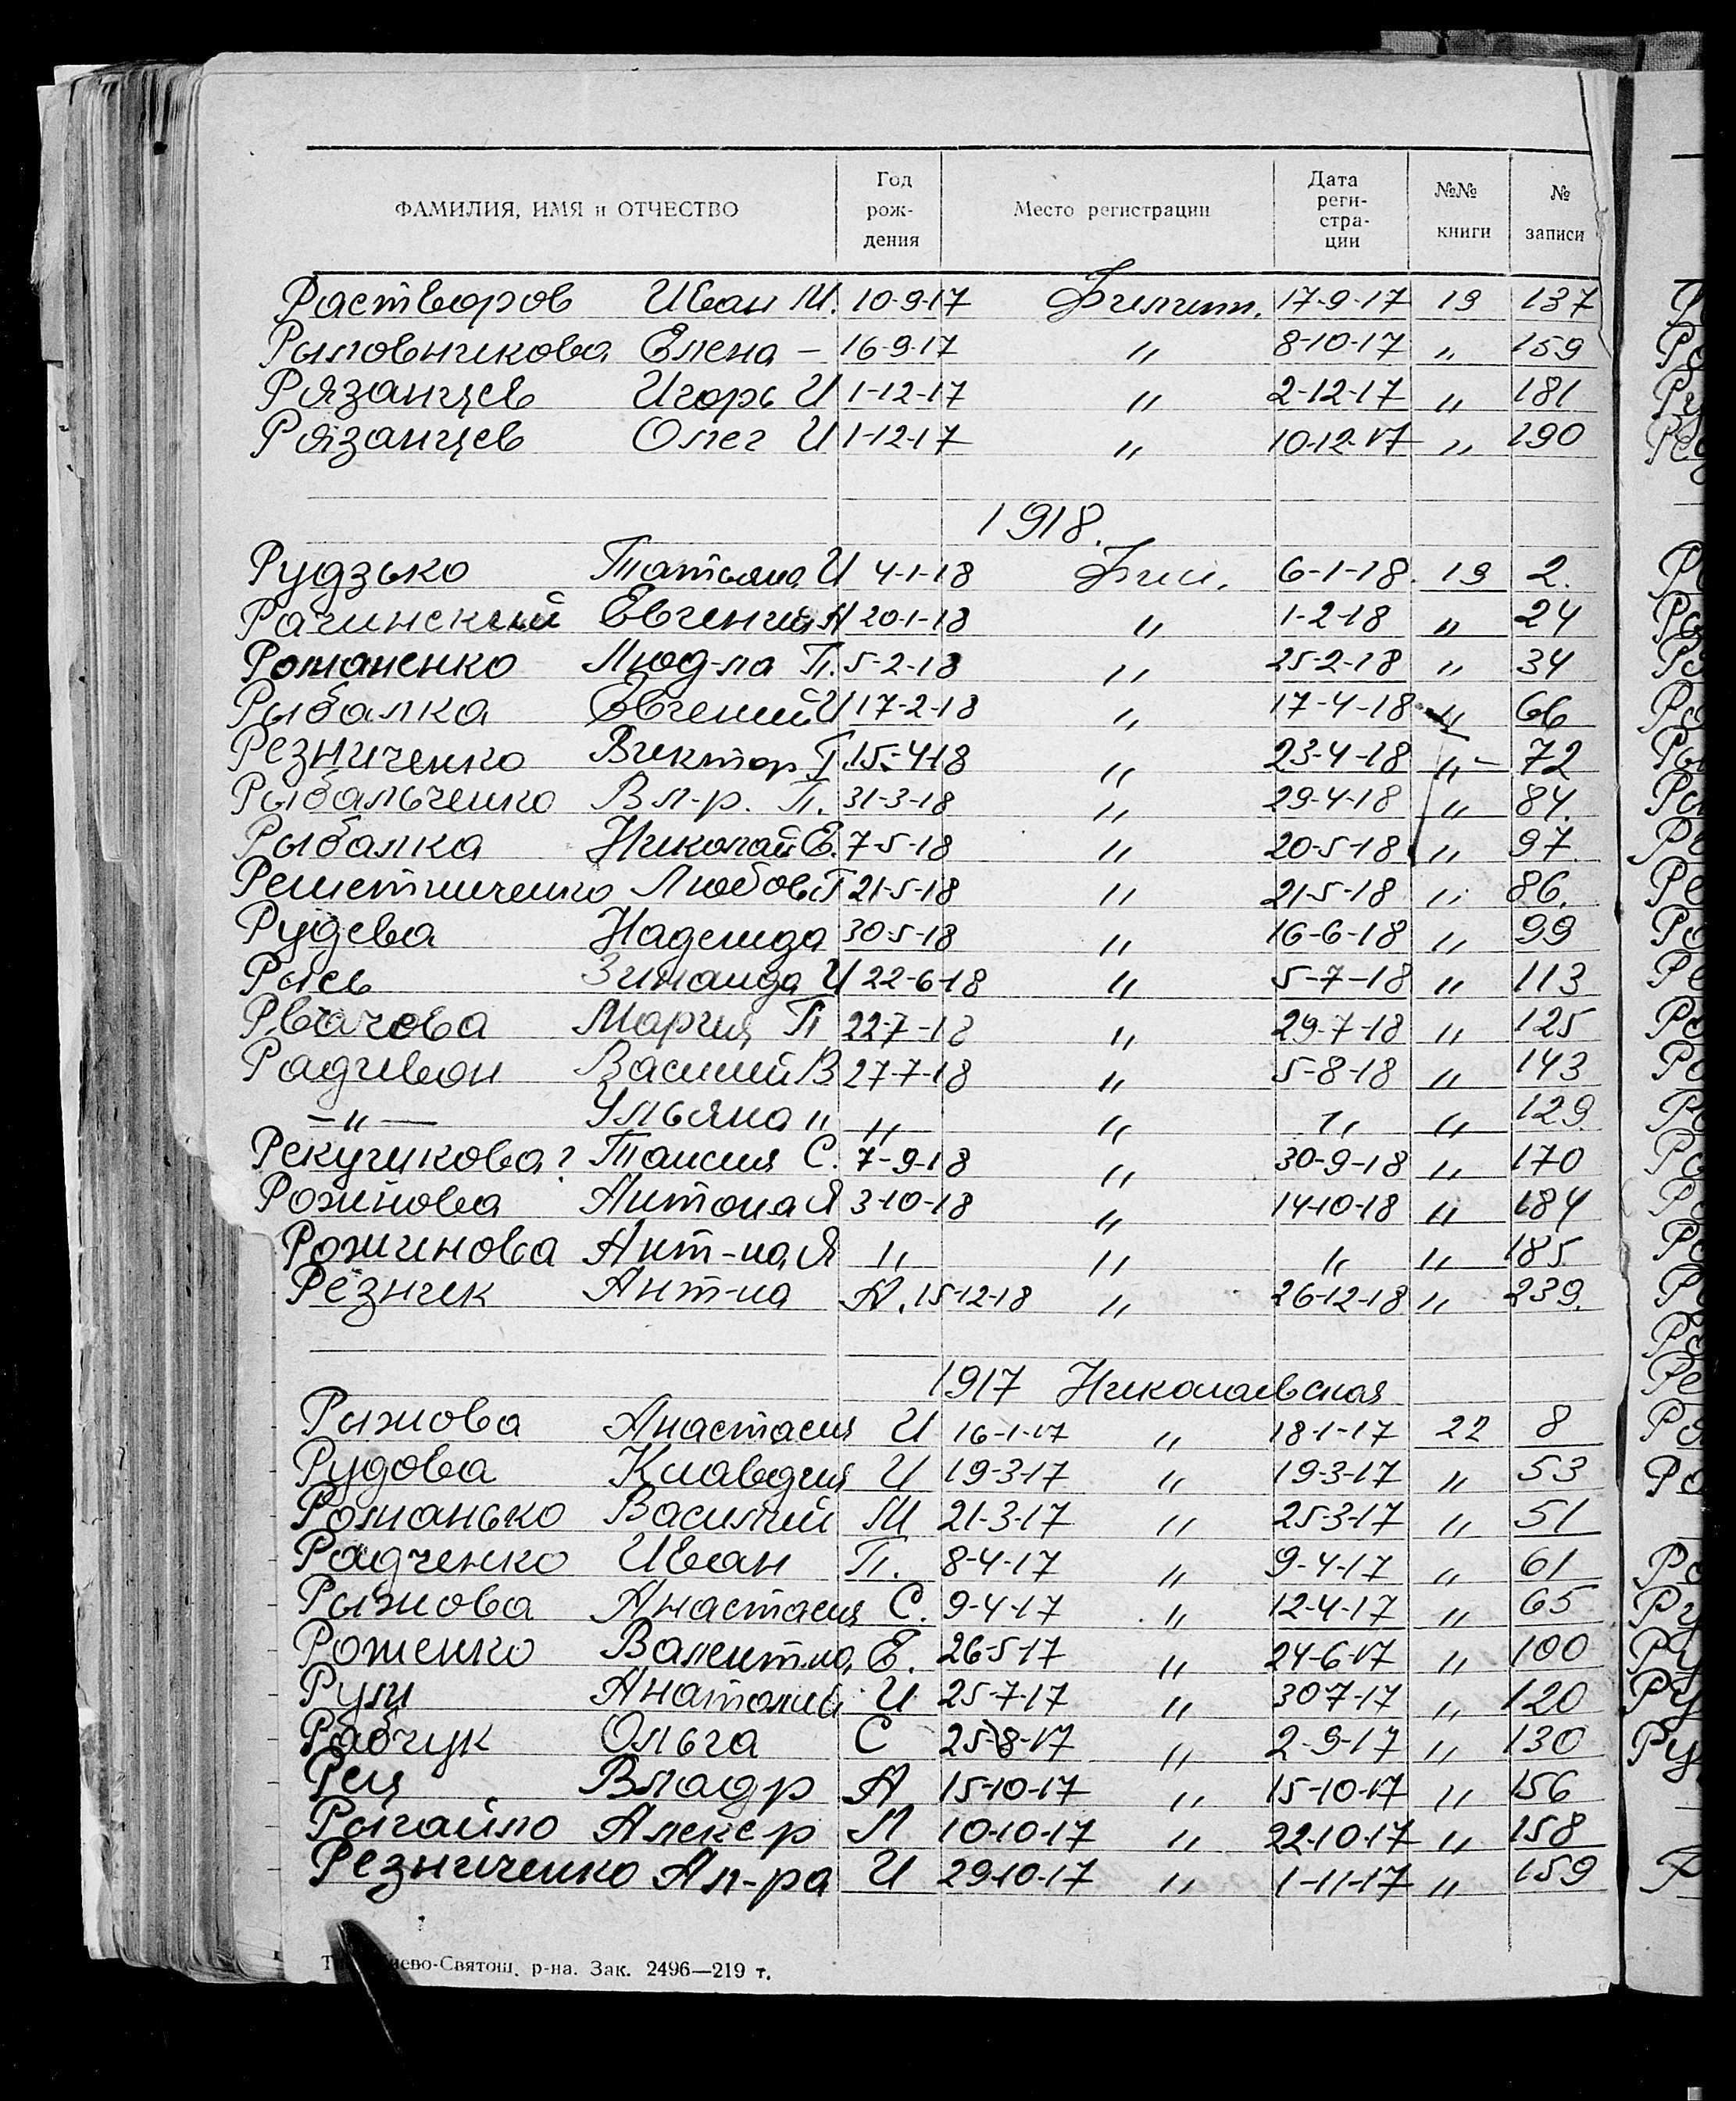 ФАМИЛИЯ, ИМЯ и ОТЧЕСТВО Год рож-дения Место регистрации Дата реги-стра-ции №№ книги № записи
Растворов Иван М. 10-9-17 17-9-17 19 137
Рыловникова Елена – 16-9-17 " 8-10-17 " 159
Рязанцев Игорь И 1-12-17 " 2-12-17 " 181
Рязанцев Олег И 1-12-17 " 10-12-17 " 190
1918.
Рудзько Татьяна И 4-1-18 6-1-18. 19 2.
Рачинский Евгений А 20-1-18 " 1-2-18 " 24
Романенко Люд-ла П. 5-2-18 " 25-2-18 " 34
Рыбалка Евгений И 17-2-18 " 17-4-18 " 66
Резниченко Виктор Г. 15-4-18 " 23-4-18 " – 72
Рыбальченко Вл-р. П. 31-3-18 " 29-4-18 " 84.
Рыбалка Николай Е. 7-5-18 " 20-5-18 " 97
Решетниченко Любовь Г 21-5-18 " 21-5-18 " 86.
Рудева Надежда 30-5-18 " 16-6-18 " 99
Рысь Зинаида И 22-6-18 " 5-7-18 " 113
Рвачова Мария П 22-7-18 " 29-7-18 " 125
Радчивон Василий В 27-7-18 " 5-8-18 " 143
–"– Ульяна " " " " " 129
Рекучикова? Таисия С. 7-9-18 " 30-9-18 " 170
Рожнова Антона Я 3-10-18 " 14-10-18 " 184
Рожинова Ант-на Я " " " " 185
Резник Ант-на А. 15-12-18 " 26-12-18 " 239.
1917 Николаевская
Рыжова Анастасия И 16-1-17 " 18-1-17 22 8
Рудова Клавдия И 19-3-17 " 19-3-17 " 53
Романько Василий М 21-3-17 " 25-3-17 " 51
Радченко Иван П. 8-4-17 " 9-4-17 " 61
Рыжова Анастасия С. 9-4-17 " 12-4-17 " 65
Роменко Валентина Е. 26-5-17 " 24-6-17 " 100
Рули Анатолий И 25-7-17 " 30-7-17 " 120
Рабчук Ольга С 25-8-17 " 2-9-17 " 130
Рец Владр А 15-10-17 " 15-10-17 " 156
Рыгайло Алекср Л 10-10-17 " 22-10-17 " 158
Резниченко Ал-ра И 29-10-17 " 1-11-17 " 159
ево-Святош. р-на. Зак. 2496—219 т.